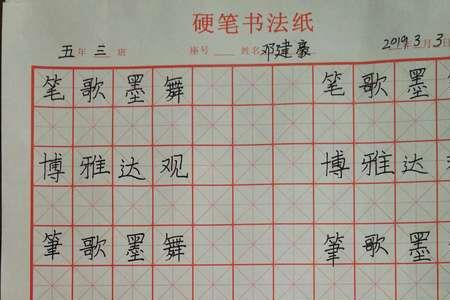 硬笔书法纸
五年三班 座号 姓名邓建豪 2019年3月3日
笔歌墨舞 笔歌墨
博雅达观 博雅达
筆歌墨舞 筆歌墨